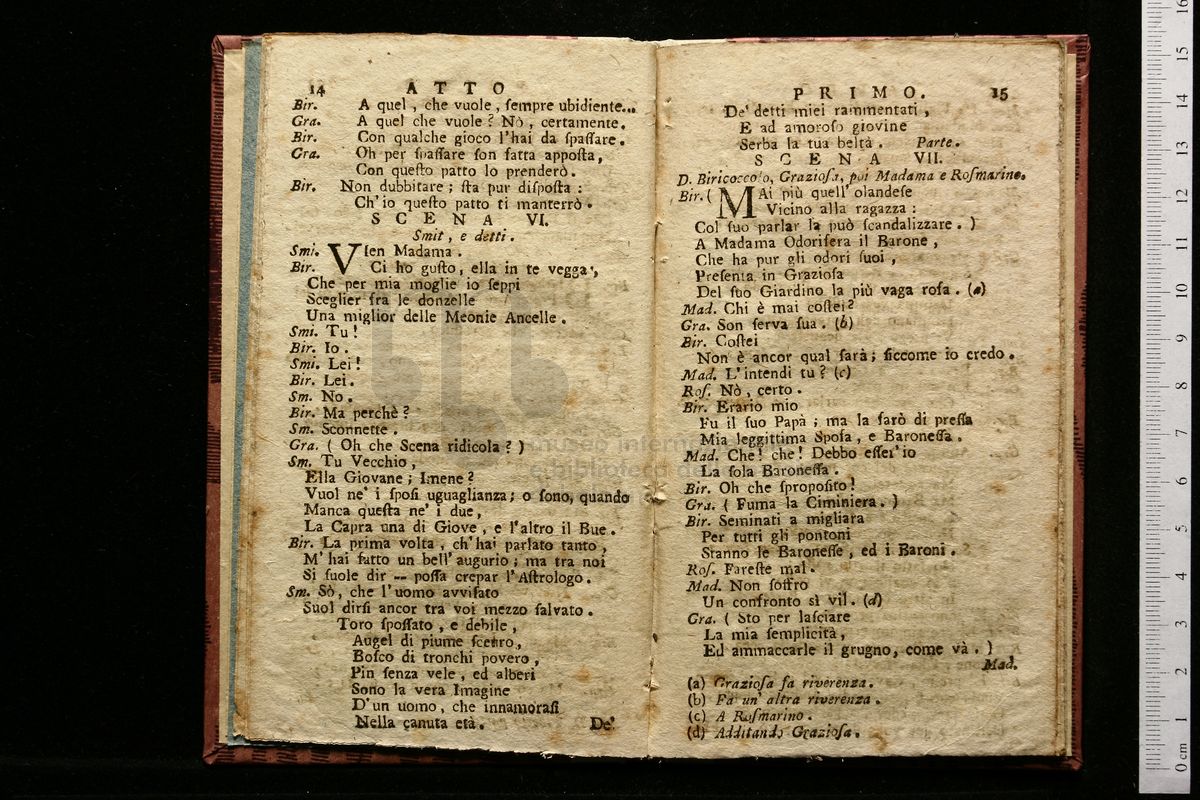 14 ATTO
Bir. A quel, che vuole, ſempre ubidiente...
Gra. A quel che vuole? Nò, certamente.
Bir. Con qualche gioco l'hai da ſpaſſare.
Gra. Oh per ſpaſſare ſon fatta appoſta,
Con queſto patto lo prenderò.
Bir. Non dubbitare; ſta pur diſpoſta:
Ch'io queſto patto ti manterrò.
SCENA VI.
Smit, e detti.
Smi. VIen Madama.
Bir. Ci ho guſto, ella in te vegga,
Che per mia moglie io ſeppi
Sceglier fra le donzelle
Una miglior delle Meonie Ancelle.
Smi. Tu!
Bir. Io.
Smi. Lei!
Bir. Lei.
Sm. No.
Bir. Ma perchè?
Sm. Sconnette.
Gra. ( Oh che Scena ridicola? )
Sm. Tu Vecchio,
Ella Giovane; Imene?
Vuol ne' i ſpoſi uguaglianza; o ſono, quando
Manca queſta ne' i due,
La Capra una di Giove, e l'altro il Bue.
Bir. La prima volta, ch'hai parlato tanto,
M'hai fatto un bell'augurio; ma tra noi
Si ſuole dir -- poſſa crepar l'Aſtrologo.
Sm. Sò, che l'uomo avviſato
Suol dirſi ancor tra voi mezzo ſalvato.
Toro ſpoſſato, e debile,
Augel di piume ſcevro,
Boſco di tronchi povero,
Pin ſenza vele, ed alberi
Sono la vera Imagine
D'un uomo, che innamoraſi
Nella canuta età. De'
PRIMO. 15
De' detti miei rammentati,
E ad amoroſo giovine
Serba la tua beltà. Parte.
SCENA VII.
D. Biricoccolo, Grazioſa, poi Madama e Roſmarino.
Bir. ( MAi più quell'olandeſe
Vicino alla ragazza:
Col ſuo parlar la può ſcandalizzare. )
A Madama Odorifera il Barone,
Che ha pur gli odori ſuoi,
Preſenta in Grazioſa
Del ſuo Giardino la più vaga roſa. (a)
Mad. Chi è mai coſtei?
Gra. Son ſerva ſua. (b)
Bir. Coſtei
Non è ancor qual ſarà; ſiccome io credo.
Mad. L'intendi tu? (c)
Roſ. Nò, certo.
Bir. Erario mio
Fu il ſuo Papà; ma la farò di preſſa
Mia leggittima Spoſa, e Baroneſſa.
Mad. Che! che! Debbo eſſer'io
La ſola Baroneſſa.
Bir. Oh che ſpropoſito!
Gra. ( Fuma la Ciminiera. )
Bir. Seminati a migliara
Per tutti gli pontoni
Stanno le Baroneſſe, ed i Baroni.
Roſ. Fareſte mal.
Mad. Non ſoffro
Un confronto sì vil. (d)
Gra. ( Sto per laſciare
La mia ſemplicità,
Ed ammaccarle il grugno, come và. )
Mad.
(a) Grazioſa fa riverenza.
(b) Fa un'altra riverenza.
(c) A Roſmarino.
(d) Additando Grazioſa.